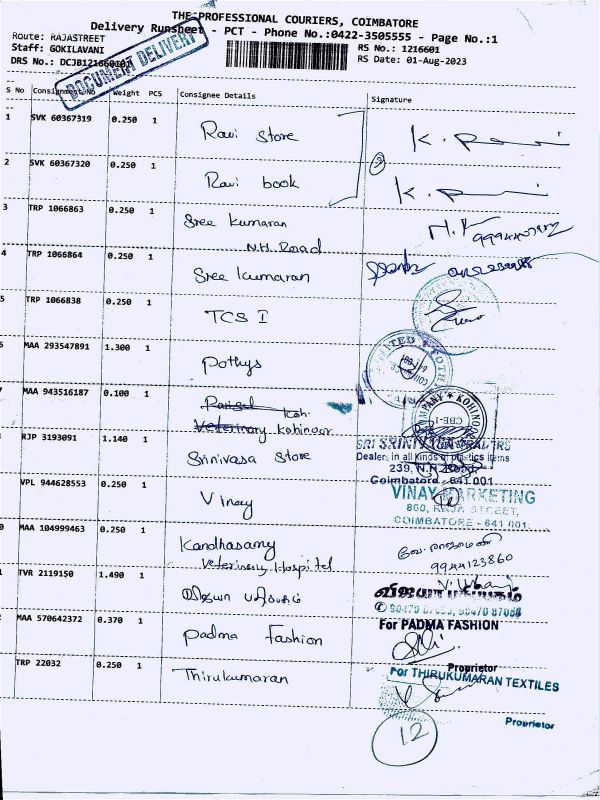 THE PROFESSIONAL COURIERS, COIMBATORE
Delivery Runsheet - PCT - Phone No.:0422-3505555 - Page No.:1
Route: RAJASTREET
Staff: GOKILAVANI
DRS No.:
RS No.: 1216601
RS Date: 01-Aug-2023
DOCUMENT DELIVERY
S No Consignment No Weight PCS Consignee Details Signature
1 SVK 60367319 0.250 1 Ravi Store K. Ravi
2 SVK 60367320 0.250 1 Ravi book K. Ravi
3 TRP 1066863 0.250 1 Sree Kumaran
N.H. Road
4 TRP 1066864 0.250 1 Sree Kumaran
5 TRP 1066838 0.250 1 TCS I
6 MAA 293547891 1.300 1 Pothys
7 MAA 943516187 0.100 1
Veterinary Kohinoor
COMPANY ★ KOHINOOR
CBE-1
RJP 3193091 1.140 1 Srinivasa Store
Dealers in all kinds of plastics items
239, N.H. Road,
Coimbatore - 641 001.
VPL 944628553 0.250 1 Vinay
VINAY MARKETING
860, RAJA STREET,
COIMBATORE - 641 001.
0 MAA 104999463 0.250 1 Kandhasamy
Veterinary Hospital
9944123860
1 TVR 2119150 1.490 1 விஜயா பதிப்பகம்
விஜயா பதிப்பகம்
2 MAA 570642372 0.370 1 Padma Fashion
For PADMA FASHION
Proprietor
TRP 22032 0.250 1 Thirukumaran
For THIRUKUMARAN TEXTILES
Proprietor
12